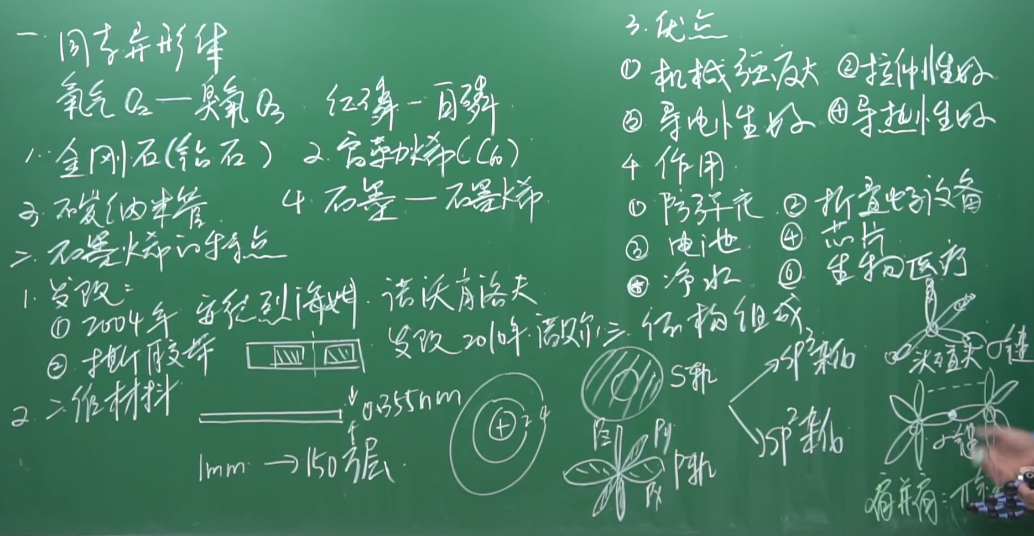 一 同素异形体
氧气O₂—臭氧O₃ 红磷—白磷
1. 金刚石(钻石) 2. 富勒烯(C₆₀)
3. 碳纳米管 4. 石墨—石墨烯
二 石墨烯的特点
1. 发现:
① 2004年 安德烈海姆. 诺沃肖洛夫
② 撕胶带 发现 2010年诺贝尔
2. 二维材料
0.355nm
1mm → 150万层
+ 2 4
3. 优点
① 机械强度大 ② 拉伸性好
③ 导电性好 ④ 导热性好
4 作用
① 防弹衣 ② 折叠电子设备
③ 电池 ④ 芯片
⑤ 净水 ⑥ 生物医疗
三 结构组成
S轨
Pz Py
Px P轨
sp³杂化
sp²杂化
头碰头 σ键
σ键
肩并肩: π